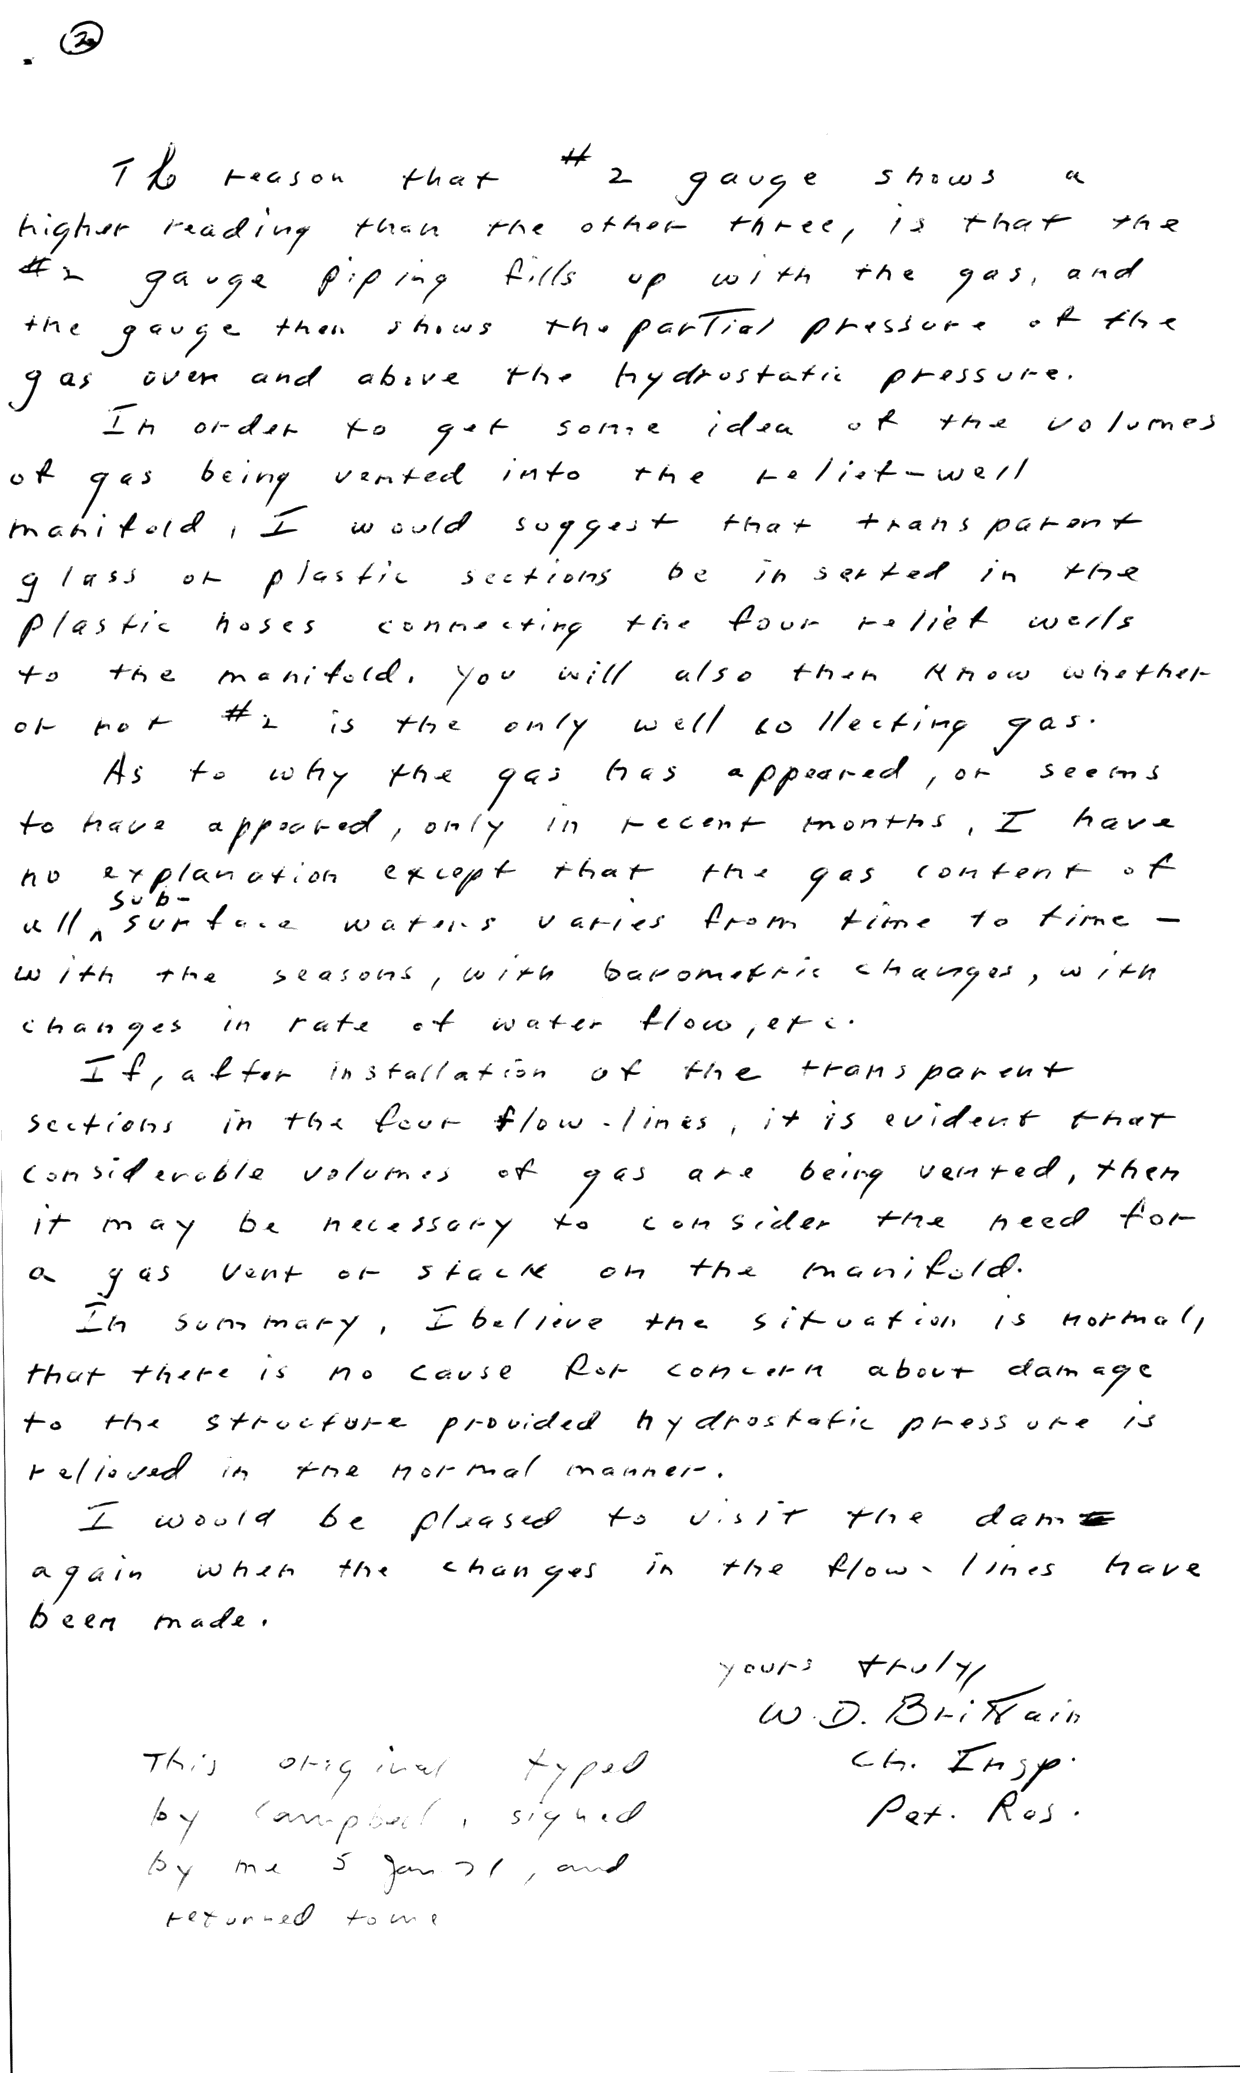 2
The reason that #2 gauge shows a
higher reading than the other three, is that the
#2 gauge piping fills up with the gas, and
the gauge then shows the partial pressure of the
gas over and above the hydrostatic pressure.
In order to get some idea of the volumes
of gas being vented into the relief-well
manifold, I would suggest that transparent
glass or plastic sections be inserted in the
plastic hoses connecting the four relief wells
to the manifold. You will also then know whether
or not #2 is the only well collecting gas.
As to why the gas has appeared, or seems
to have appeared, only in recent months, I have
no explanation except that the gas content of
all sub-surface waters varies from time to time -
with the seasons, with barometric changes, with
changes in rate of water flow, etc.
If, after installation of the transparent
sections in the four flow-lines, it is evident that
considerable volumes of gas are being vented, then
it may be necessary to consider the need for
a gas vent or stack on the manifold.
In summary, I believe the situation is normal,
that there is no cause for concern about damage
to the structure provided hydrostatic pressure is
relieved in the normal manner.
I would be pleased to visit the dam
again when the changes in the flow-lines have
been made.
yours truly,
W.D. Brittain
Ch. Insp.
Pet. Res.
This original typed
by Campbell, signed
by me 5 Jan 71, and
returned to me